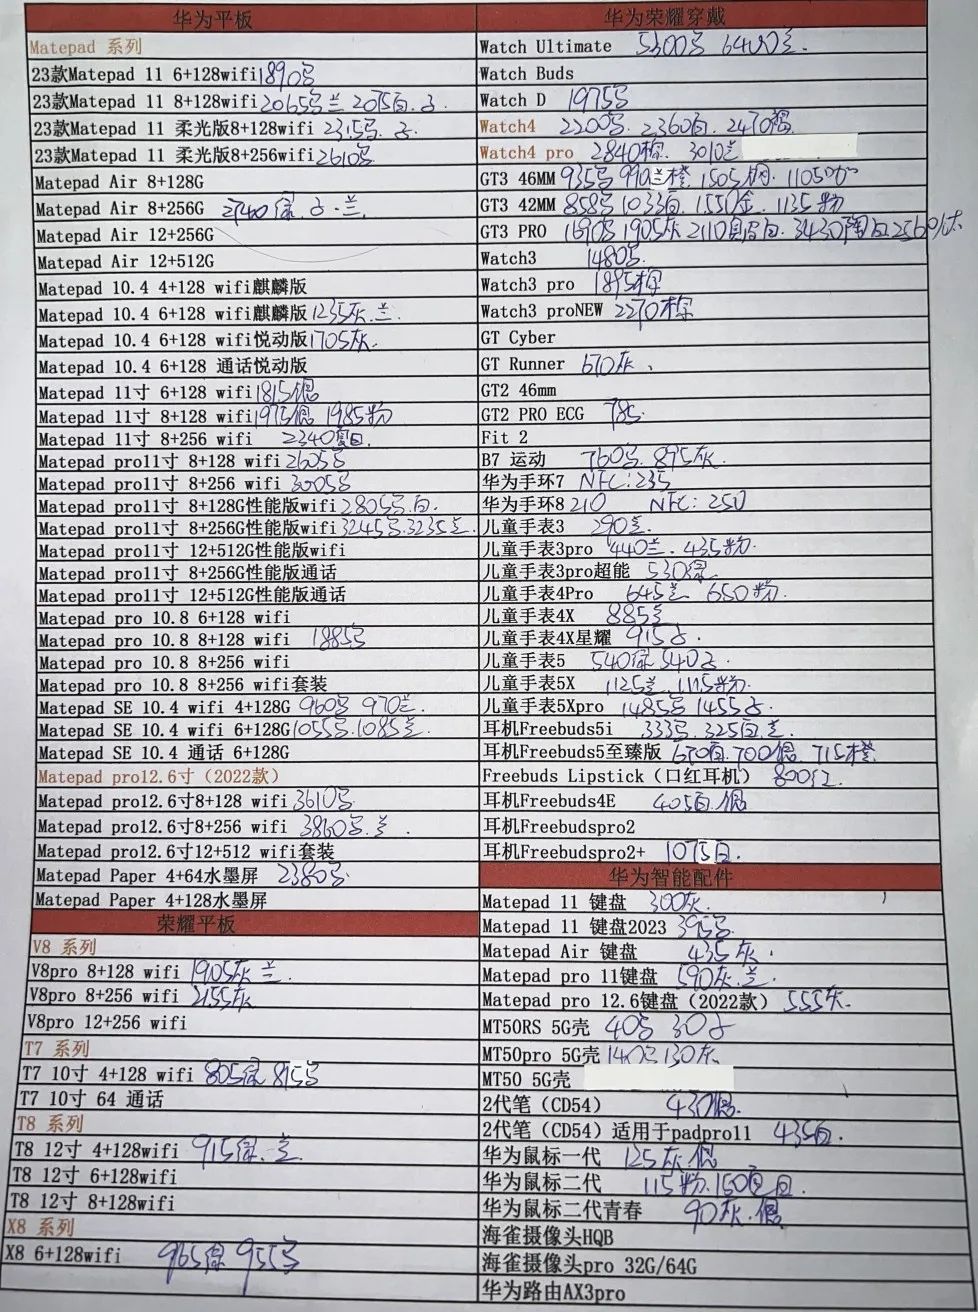 华为平板
Matepad 系列
23款Matepad 11 6+128wifi 1890
23款Matepad 11 8+128wifi 2065 兰 2075白
23款Matepad 11 柔光版8+128wifi 2315
23款Matepad 11 柔光版8+256wifi 2610
Matepad Air 8+128G
Matepad Air 8+256G 2740绿 兰
Matepad Air 12+256G
Matepad Air 12+512G
Matepad 10.4 4+128 wifi麒麟版
Matepad 10.4 6+128 wifi麒麟版 1235灰.兰.
Matepad 10.4 6+128 wifi悦动版 1705灰.
Matepad 10.4 6+128 通话悦动版
Matepad 11寸 6+128 wifi 1815
Matepad 11寸 8+128 wifi 1975 1985粉
Matepad 11寸 8+256 wifi 2340
Matepad pro11寸 8+128 wifi 2605
Matepad pro11寸 8+256 wifi 3005
Matepad pro11寸 8+128G性能版wifi 2805 白.
Matepad pro11寸 8+256G性能版wifi 3245 3235兰.
Matepad pro11寸 12+512G性能版wifi
Matepad pro11寸 8+256G性能版通话
Matepad pro11寸 12+512G性能版通话
Matepad pro 10.8 6+128 wifi
Matepad pro 10.8 8+128 wifi 1885
Matepad pro 10.8 8+256 wifi
Matepad pro 10.8 8+256 wifi套装
Matepad SE 10.4 wifi 4+128G 960 970兰.
Matepad SE 10.4 wifi 6+128G 1055 1085兰.
Matepad SE 10.4 通话 6+128G
Matepad pro12.6寸（2022款）
Matepad pro12.6寸8+128 wifi 3610
Matepad pro12.6寸8+256 wifi 3860 兰.
Matepad pro12.6寸12+512 wifi套装
Matepad Paper 4+64水墨屏 2380
Matepad Paper 4+128水墨屏
荣耀平板
V8 系列
V8pro 8+128 wifi 1905灰 兰.
V8pro 8+256 wifi 2155灰
V8pro 12+256 wifi
T7 系列
T7 10寸 4+128 wifi 805绿 815
T7 10寸 64 通话
T8 系列
T8 12寸 4+128wifi 915绿.兰.
T8 12寸 6+128wifi
T8 12寸 8+128wifi
X8 系列
X8 6+128wifi 965绿 955
华为荣耀穿戴
Watch Ultimate 5300 6400兰.
Watch Buds
Watch D 1975
Watch4 2200 2360白. 2470
Watch4 pro 2840棕. 3010兰
GT3 46MM 935 990兰橙 1505钢. 1105
GT3 42MM 858 1033白. 1550金. 1135粉
GT3 PRO 1690 1905灰 2110 3430陶白 2560钛
Watch3 1480
Watch3 pro 1895棕
Watch3 proNEW 2270棕
GT Cyber
GT Runner 670灰
GT2 46mm
GT2 PRO ECG 785
Fit 2
B7 运动 760 895灰.
华为手环7 NFC:235
华为手环8 210 NFC: 250
儿童手表3 290兰.
儿童手表3pro 440兰. 435粉.
儿童手表3pro超能 530绿.
儿童手表4Pro 645兰 650粉.
儿童手表4X 885兰
儿童手表4X星耀 915
儿童手表5 540绿 540
儿童手表5X 1125兰 1115粉.
儿童手表5Xpro 1485 1455
耳机Freebuds5i 333 325白.兰.
耳机Freebuds5至臻版 670白.700 715橙.
Freebuds Lipstick（口红耳机） 800红.
耳机Freebuds4E 405白.
耳机Freebudspro2
耳机Freebudspro2+ 1075白.
华为智能配件
Matepad 11 键盘 300灰.
Matepad 11 键盘2023 395
Matepad Air 键盘 435灰.
Matepad pro 11键盘 590灰.兰.
Matepad pro 12.6键盘（2022款） 555灰.
MT50RS 5G壳 40 30
MT50pro 5G壳 140 130灰
MT50 5G壳
2代笔（CD54） 430
2代笔（CD54）适用于padpro11 435白.
华为鼠标一代 125灰.
华为鼠标二代 115粉.150
华为鼠标二代青春 90灰.
海雀摄像头HQB
海雀摄像头pro 32G/64G
华为路由AX3pro